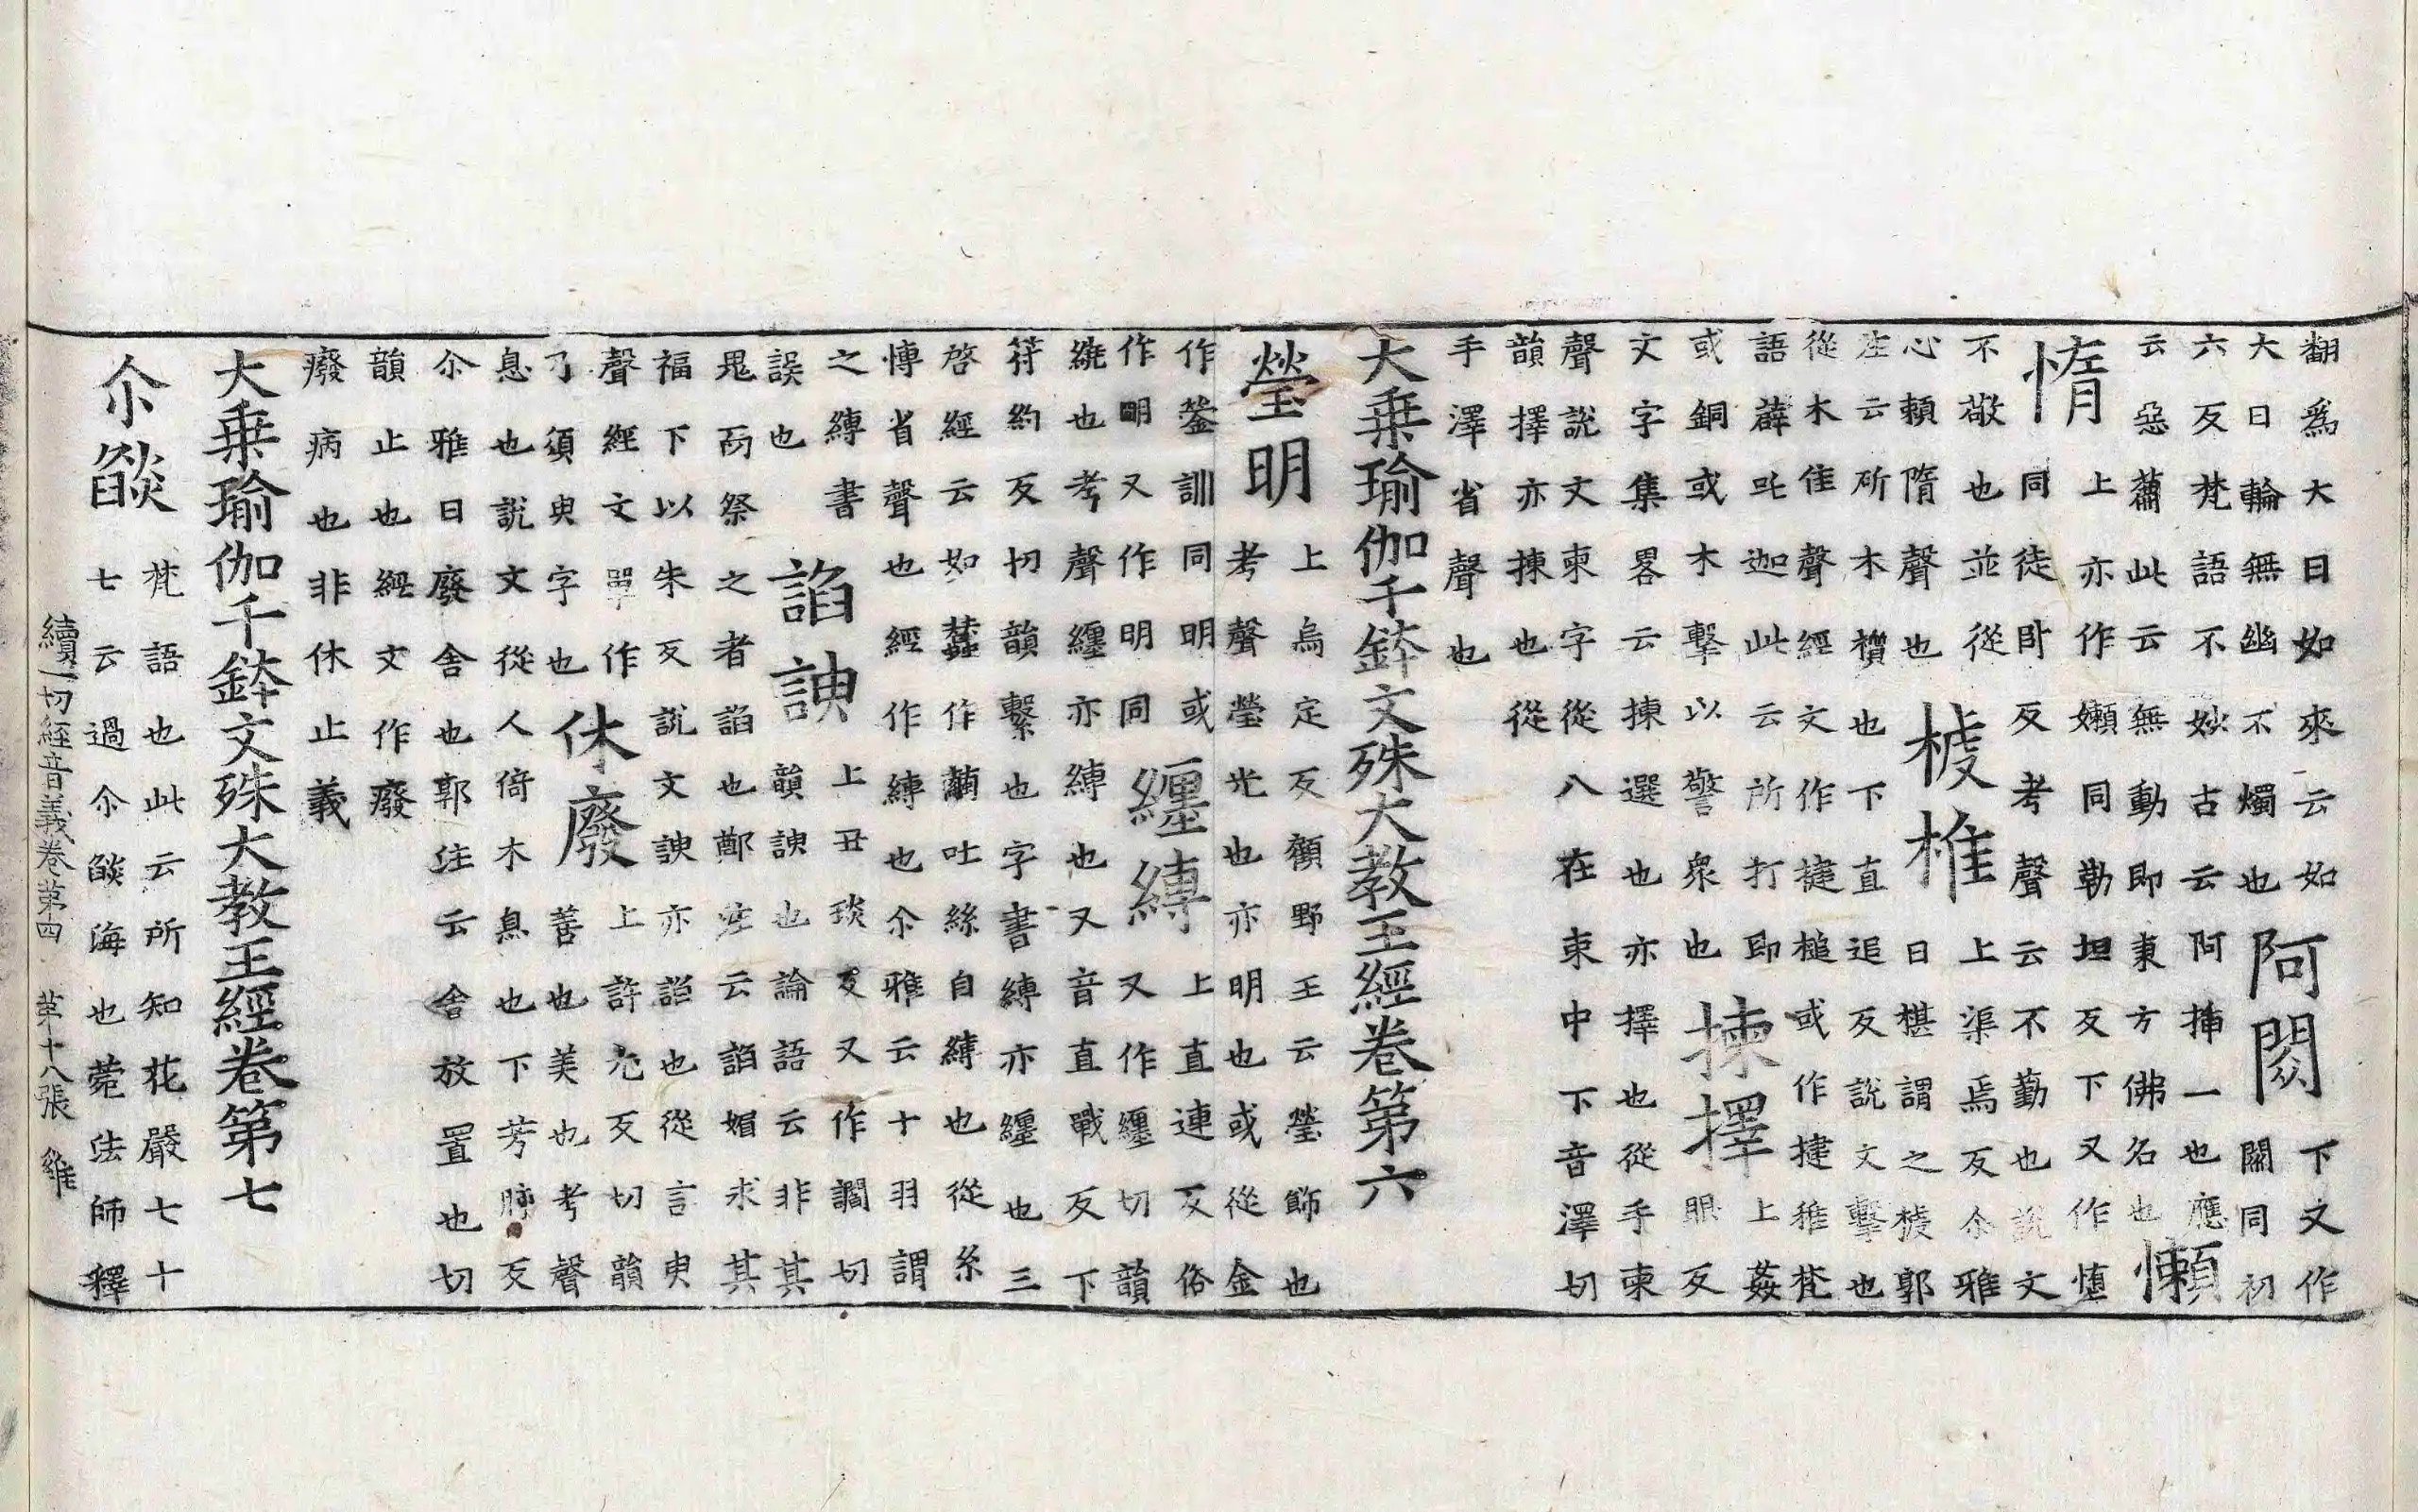 翻爲大日如來云如
大日輪無幽不燭也
阿閦
下文作
閦同初
六反梵語不妙古云阿插一也應
云惡蕭此云無動即東方佛名也
懶
惰
上亦作嬾同勒坦反下又作憜
同徒卧反考聲云不勤也説文
不敬也並從
心頼隋聲也
榩椎
上渠焉反尒雅
曰椹謂之榩郭
注云斫木櫍也下直追反説文擊也
從木隹聲經文作揵槌或作揵稚梵
語薜吒迦此云所打即
或銅或木擊以警衆也
揀擇
上姦
眼反
文字集畧云揀選也亦擇也從手柬
聲説文柬字從八在束中下音澤切
韻擇亦揀也從
手澤省聲也
大乗瑜伽千鉢文殊大教王經卷第六
瑩明
上烏定反顧野王云瑩飾也
考聲瑩光也亦明也或從金
作鎣訓同明或
作明又作明同
纏縛
上直連反俗
又作纏切韻
繞也考聲纏亦縛也又音直戰反下
符約反切韻繫也字書縛亦纏也三
啓經云如蠶作繭吐絲自縛也從糸
慱省聲也經作縛也尒雅云十羽謂
之縛書
誤也
諂諛
上丑琰反又作讇切
韻諛也論語云非其
鬼而祭之者諂也鄭注云諂媚求其
福下以朱反説文諛亦諂也從言臾
聲經文單作
了須臾字也
休廢
上許尤反切韻
善也美也考聲
息也説文從人倚木息也下芳肺反
尒雅曰廢舍也郭注云舍放置也切
韻止也經文作癈
癈病也非休止義
大乗瑜伽千鉢文殊大教王經卷第七
尒燄
梵語也此云所知花嚴七十
七云過尒燄海也菀法師釋
續一切經音義卷第四 第十八張 雞